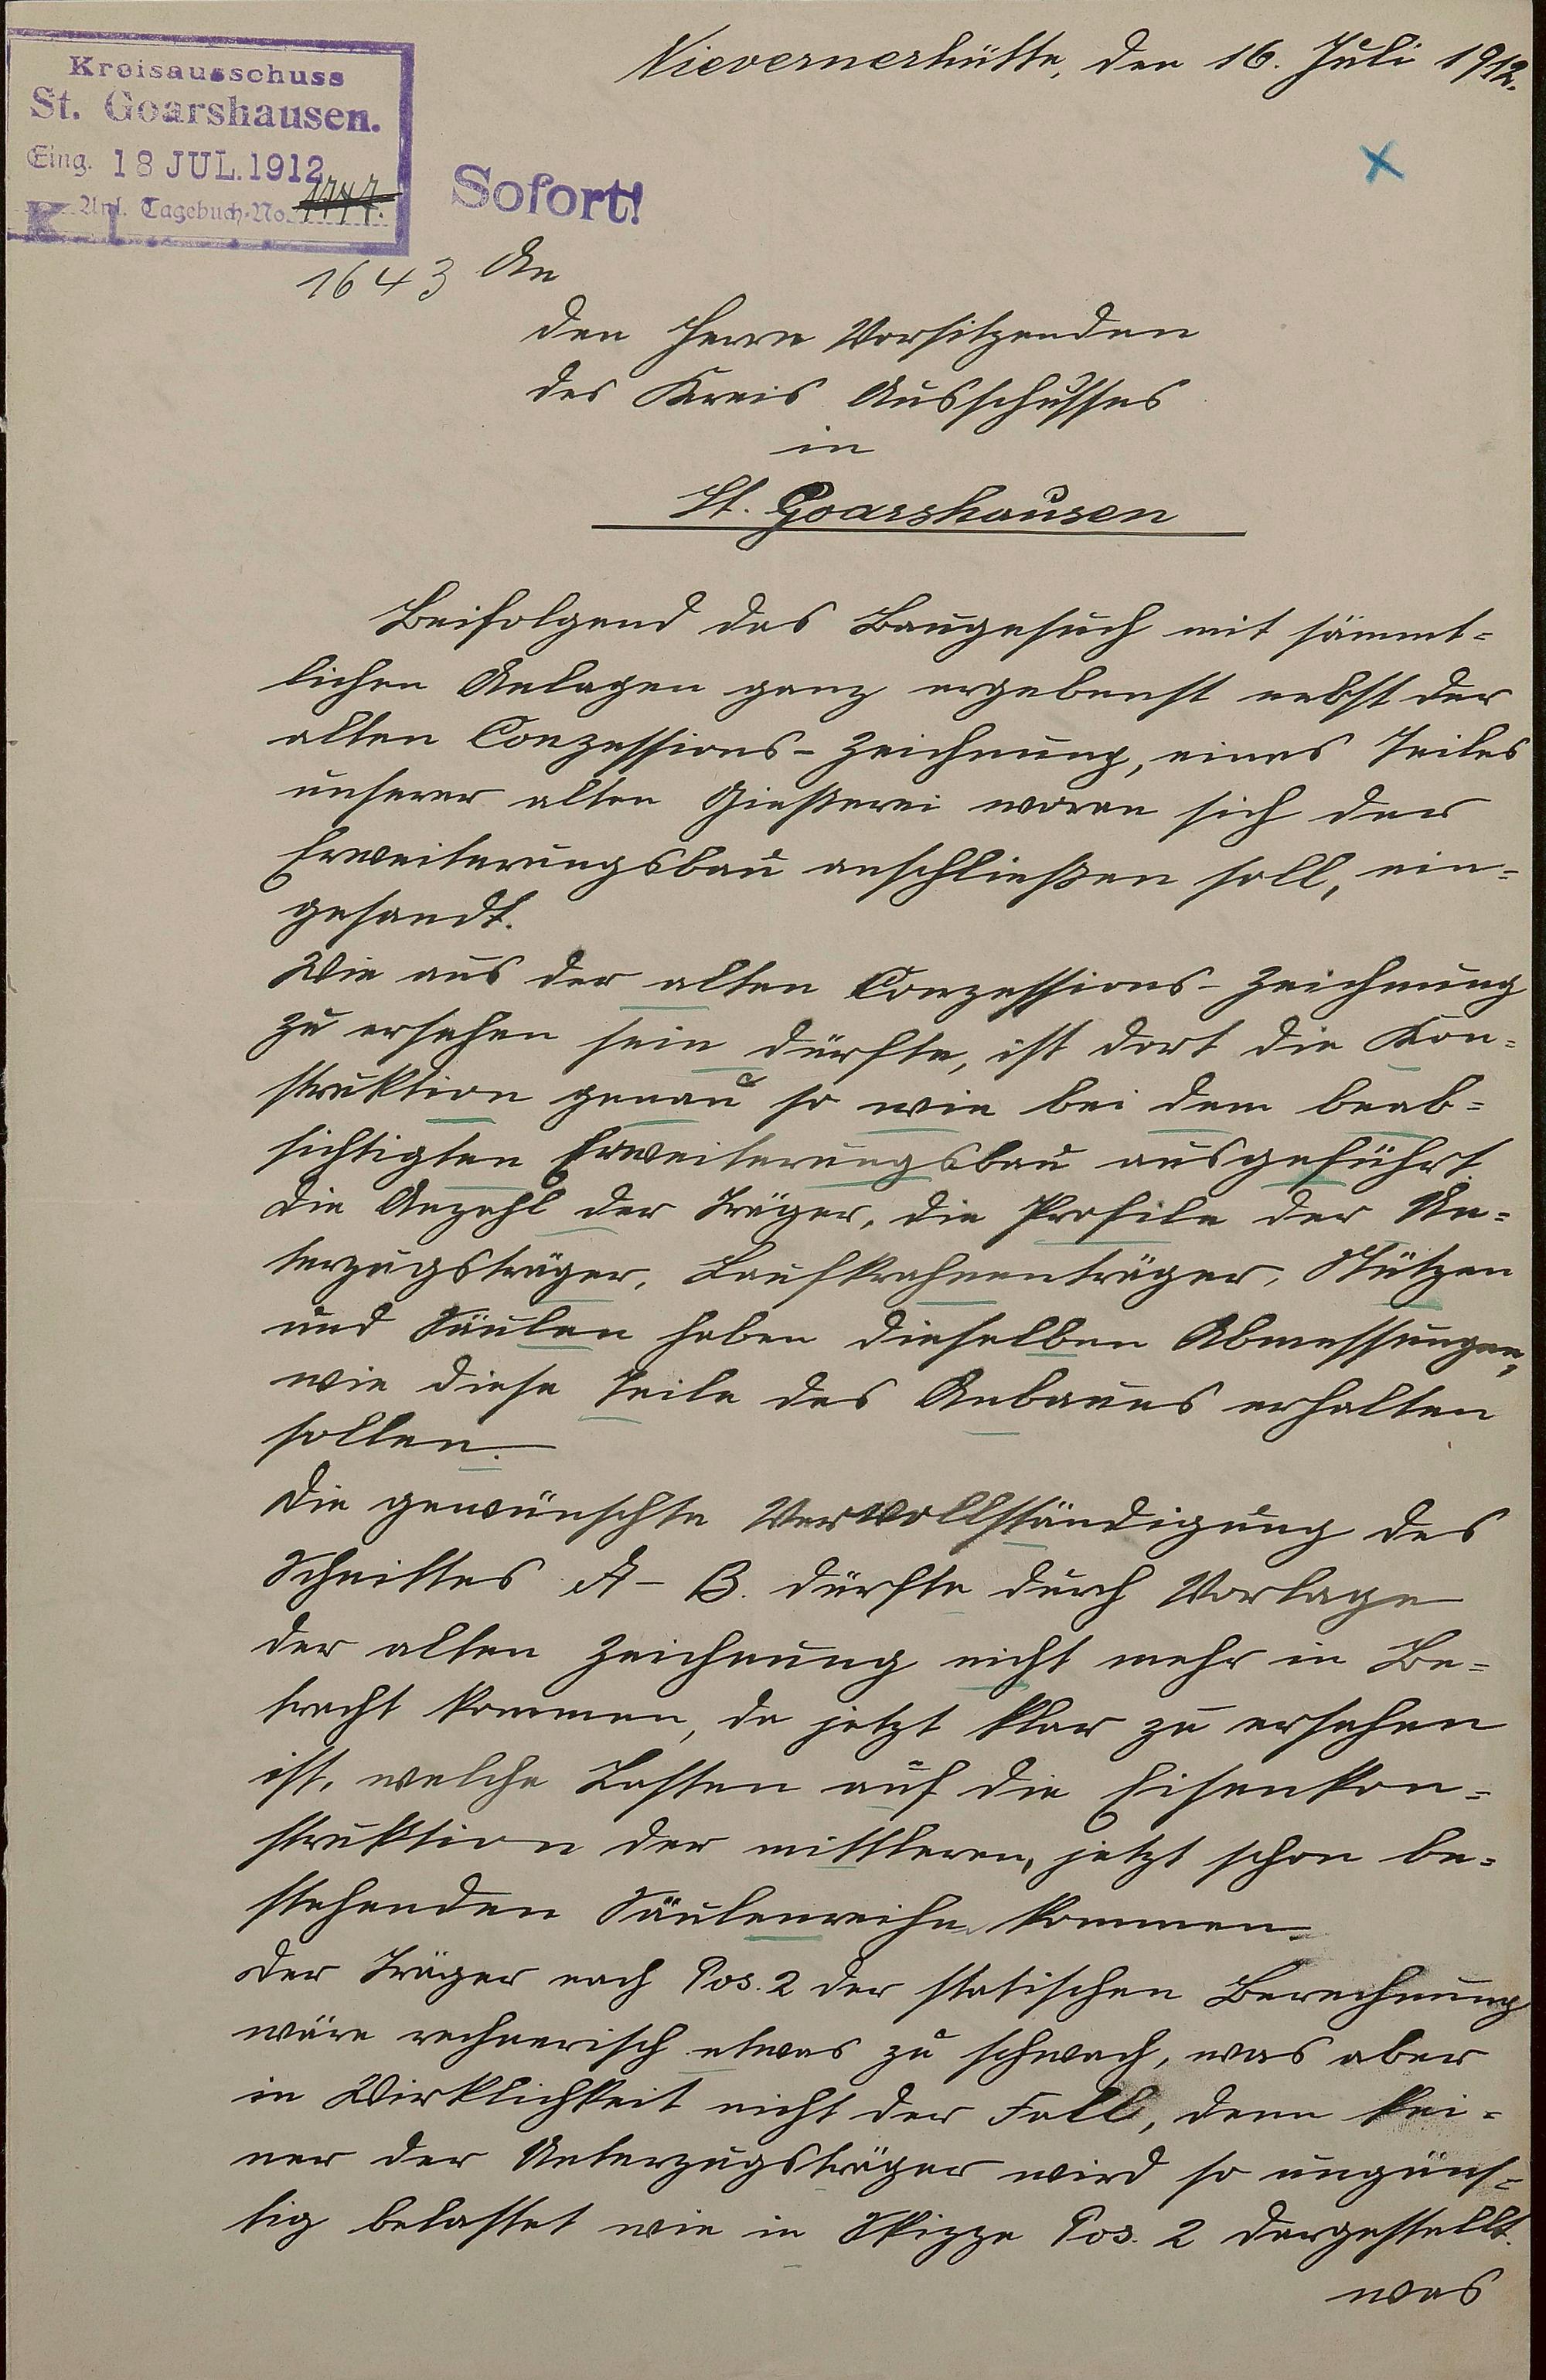 Nievernerhütte, den 16. Juli 1912.
Kreisausschuss
St. Goarshausen.
Eing. 18 JUL. 1912
Anl. Tagebuch-No. 1747.
K I
Sofort!
1643
An
den Herrn Vorsitzenden
des Kreis Ausschusses
in
St. Goarshausen
Beifolgend das Baugesuch mit sämmt=
lichen Anlagen ganz ergebenst nebst der
alten Conzessions-Zeichnung, eines Teiles
unserer alten Gießerei woran sich der
Erweiterungsbau anschließen soll, ein=
gesandt.
Wie aus der alten Conzessions-Zeichnung
zu ersehen sein dürfte, ist dort die Kon=
struktion genau so wie bei dem beab=
sichtigten Erweiterungsbau ausgeführt.
Die Anzahl der Träger, die Profile der Un=
terzugsträger, Laufkrahnenträger, Stützen
und Säulen haben dieselben Abmessungen,
wie diese Teile des Anbaues erhalten
sollen.
Die gewünschte Vervollständigung des
Schnittes A-B. dürfte durch Vorlage
der alten Zeichnung nicht mehr in Be=
tracht kommen, da jetzt klar zu ersehen
ist, welche Lasten auf die Eisenkon=
struktion der mittleren, jetzt schon be=
stehenden Säulenreihe kommen.
Der Träger nach Pos. 2 der statischen Berechnung
wäre rechnerisch etwas zu schwach, was aber
in Wirklichkeit nicht der Fall, denn kei=
ner der Unterzugsträger wird so ungüns=
tig belastet wie in Skizze Pos. 2 dargestellt.
was